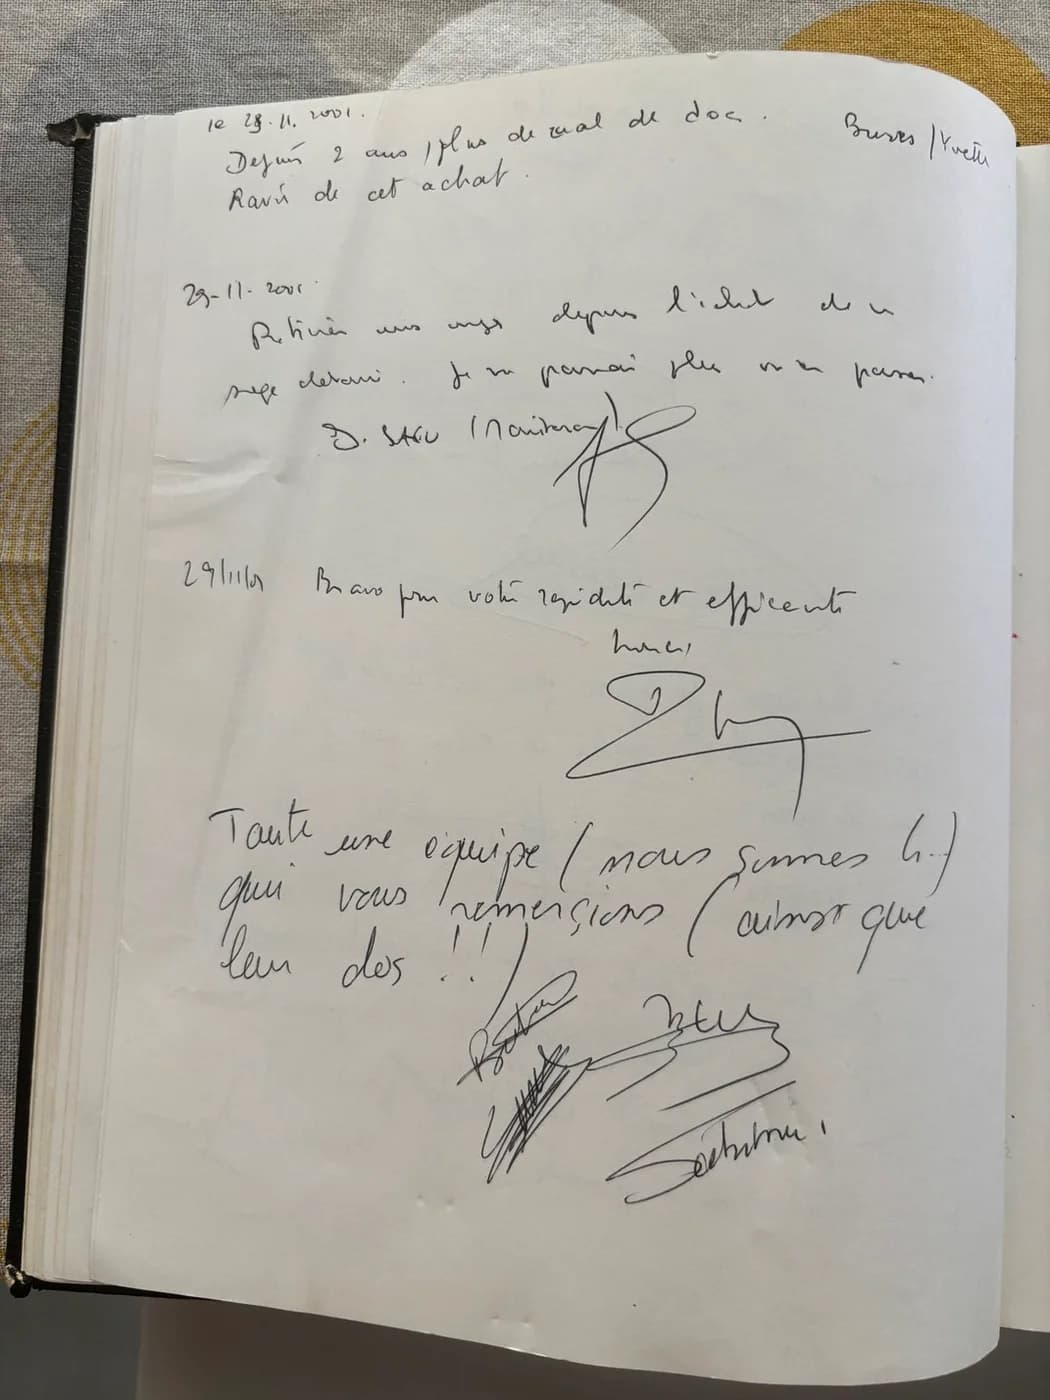 le 29.11.2001.
Depuis 2 ans, plus de mal de dos. Buses / Yvette
Ravis de cet achat.
29-11-2001.
depuis l'achat de ce
siège derori. Je ne pourrai plus m'en passer.
D. SAGU
29/11/01 Bravo pour votre rapidité et efficacité
Merci
Toute une équipe (nous sommes 4..)
qui vous remerçions (ainsi que
leur dos !!